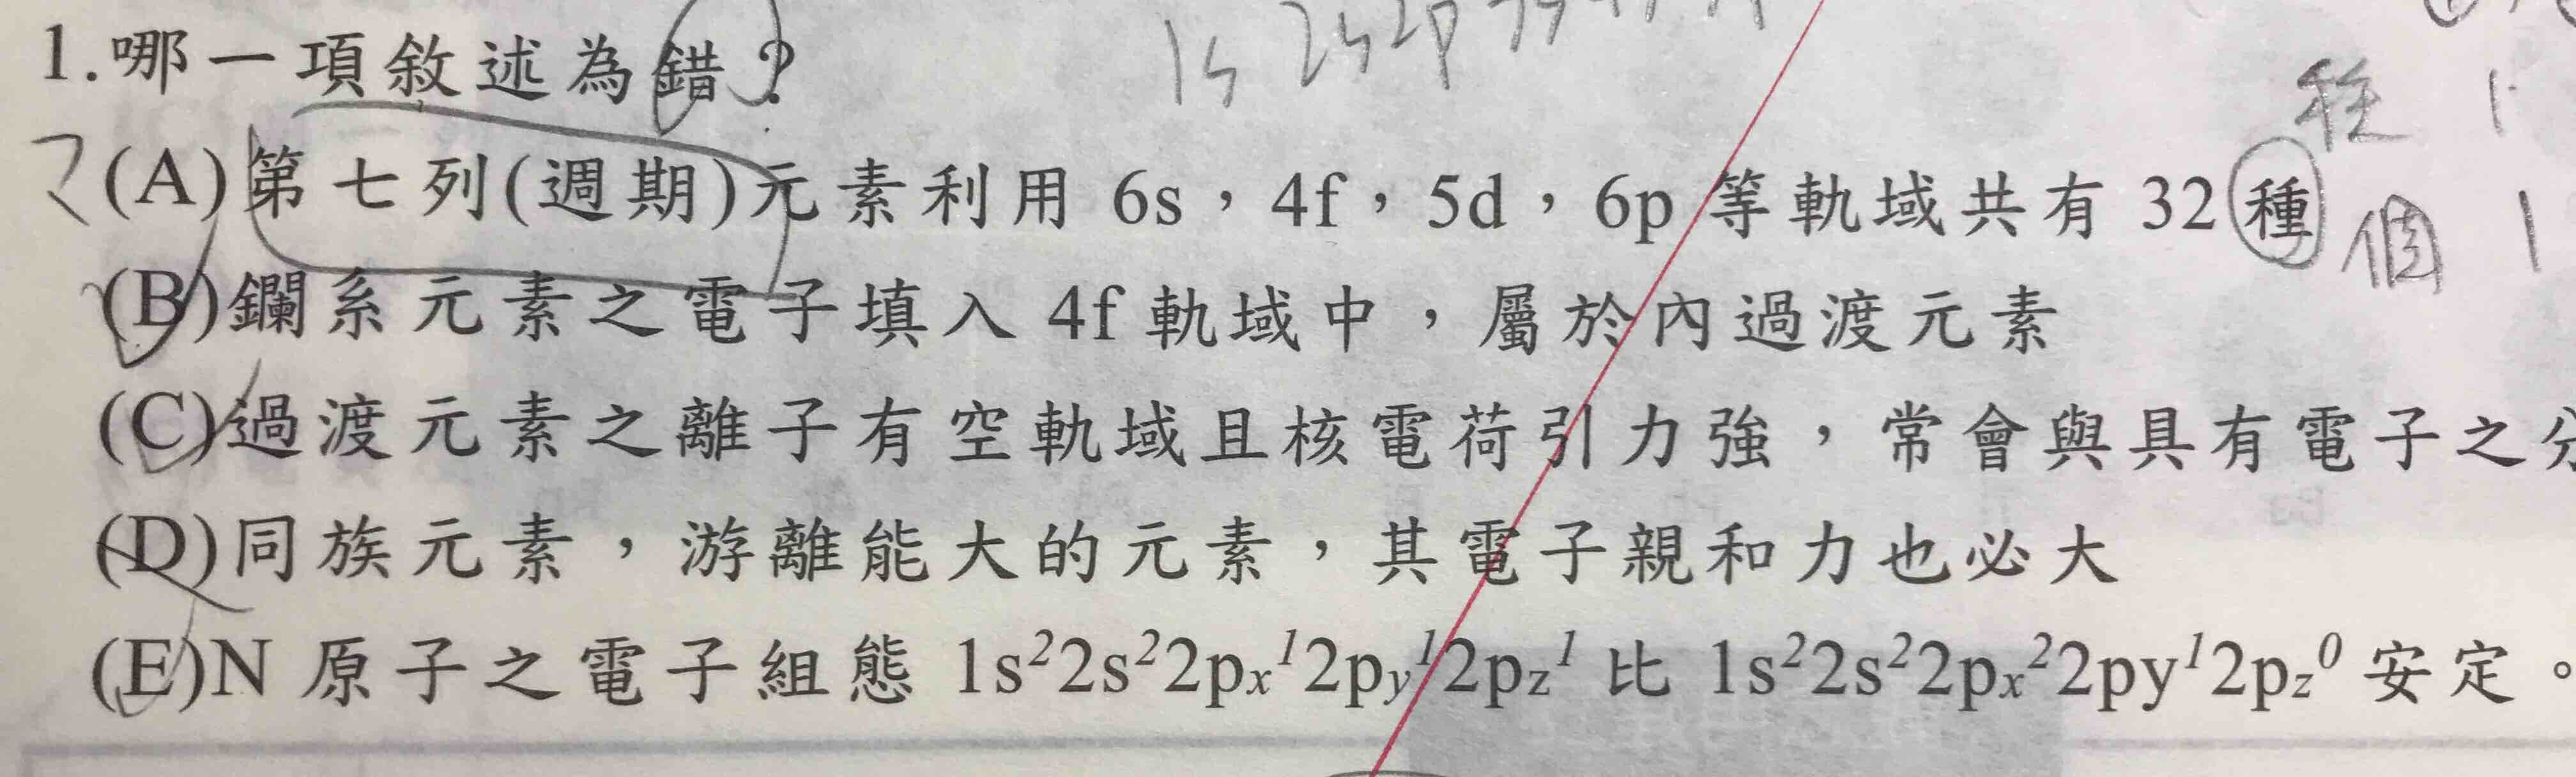 1s 2s 2p
1.哪一項敘述為錯？
種
(A)第七列(週期)元素利用 6s，4f，5d，6p 等軌域共有 32 種
個
(B)鑭系元素之電子填入 4f 軌域中，屬於內過渡元素
(C)過渡元素之離子有空軌域且核電荷引力強，常會與具有電子之分
(D)同族元素，游離能大的元素，其電子親和力也必大
(E)N 原子之電子組態 1s²2s²2pₓ¹2py¹2pz¹ 比 1s²2s²2pₓ²2py¹2pz⁰ 安定。